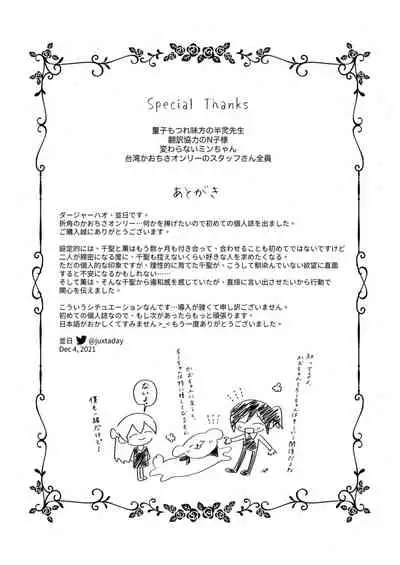 Special Thanks
量子もつれ味方の半灵先生
翻訳協力のN子様
変わらないミンちゃん
台湾かおちさオンリーのスタッフさん全員
あとがき
ダージャーハオ・並日です。
折角のかおちさオンリー…何かを捧げたいので初めての個人誌を出ました。
ご購入誠にありがとうございます。
設定的には、千聖と薫はもう数ヶ月も付き合って、合わせることも初めてではないですけど
二人が親密になる度に、千聖も控えないくらい好きな人を求めたくなる。
ただの個人的な印象ですが、理性的に育てた千聖が、こうして馴染んでいない欲望に直面
すると不安になるかもしれない……
そして薫は、そんな千聖から違和感を感じていたが、直接に言い出させたいから行動で
関心を伝えました。
こういうシチュエーションなんです…導入が雑くて申し訳ございません。
初めての個人誌なので、もし次があったらもっと頑張ります。
日本語がおかしくてすみません>_<もう一度ありがとうございました。
並日 @juxtaday
Dec 4, 2021
ないよ。
僕も一緒だけど！